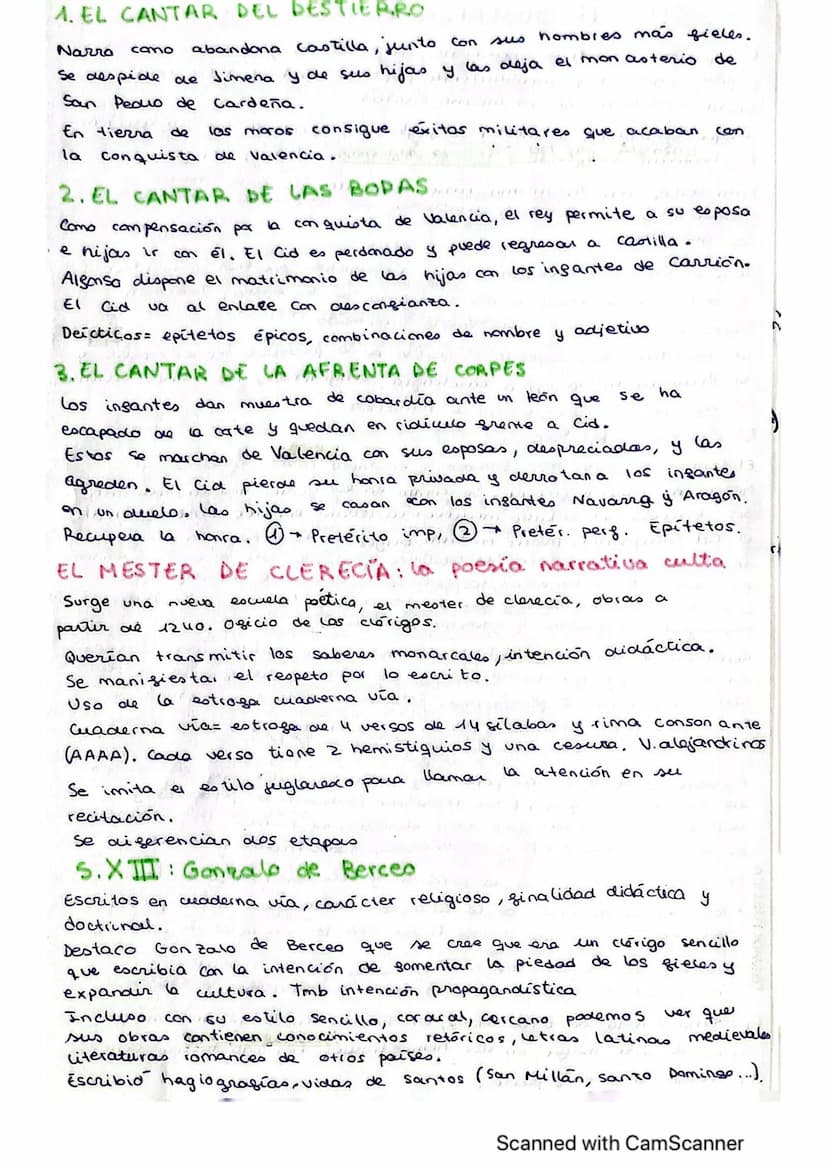 1. EL CANTAR DEL DESTIERRO
Narra como abandona Castilla, junto con sus hombres más fieles.
Se despide de Jimena y de sus hijas y las deja el monasterio de
San Pedro de Cardeña.
En tierra de los moros consigue éxitos militares que acaban con
la conquista de Valencia.
2. EL CANTAR DE LAS BODAS
Como compensación por la conquista de Valencia, el rey permite a su esposa
e hijas ir con él. El Cid es perdonado y puede regresar a Castilla.
Alfonso dispone el matrimonio de las hijas con los infantes de Carrión.
El Cid va al enlace con desconfianza.
Deícticos= epítetos épicos, combinaciones de nombre y adjetivo
3. EL CANTAR DE LA AFRENTA DE CORPES
Los infantes dan muestra de cobardía ante un león que se ha
escapado de la corte y quedan en ridículo frente a Cid.
Estos se marchan de Valencia con sus esposas, despreciadas, y las
agreden. El Cid pierde su honra privada y derrotan a los infantes
en un duelo. Las hijas se casan con los infantes Navarra y Aragón.
Recupera la honra. ① → Pretérito imp, ② → Pretér. perf. Epítetos.
EL MESTER DE CLERECÍA: la poesía narrativa culta
Surge una nueva escuela poética, el mester de clerecía, obras a
partir de 1240. Oficio de los clérigos.
Querían transmitir los saberes monarcales, intención didáctica.
Se manifiesta el respeto por lo escrito.
Uso de la estrofa cuaderna vía.
Cuaderna vía= estrofa de 4 versos de 14 sílabas y rima consonante
(AAAA). Cada verso tiene 2 hemistiquios y una cesura. V. alejandrinos
Se imita el estilo juglaresco para llamar la atención en su
recitación.
Se diferencian dos etapas
S. XIII: Gonzalo de Berceo
Escritos en cuaderna vía, carácter religioso, finalidad didáctica y
doctrinal.
Destaco Gonzalo de Berceo que se cree que era un clérigo sencillo
que escribia con la intención de fomentar la piedad de los fieles y
expandir la cultura. Tmb intención propagandística
Incluso con su estilo sencillo, coral, cercano podemos ver que
sus obras contienen conocimientos retóricos, letras latinas medievales
literaturas romances de otros países.
Escribió hagiografías, vidas de santos (San Millán, Santo Domingo...).
Scanned with CamScanner